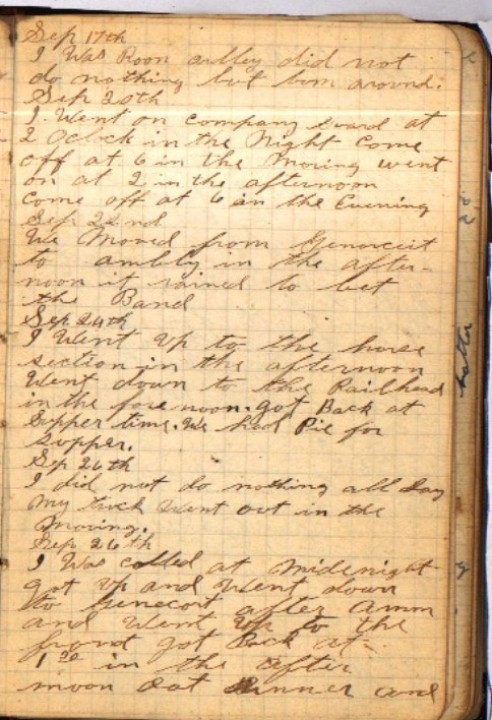 Sep 17th
I Was Room ordley did not
do nothing but bum around.
Sep 20th
I Went on Company Guard at
2 Oclock in the Night Come
off at 6 in the Moring went
on at 2 in the afternoon
Come off at 6 in the Evening
Sep 22nd
We Moved from Genorcuit
to ambly in the after-
noon it rained to bet
the Band
Sep 24th
I Went Up to the horse
section in the afternoon
Went down to the Railhead
in the fore noon. got Back at
Supper time. We had Pie for
Supper.
Sep 26th
I did not do nothing all Day
My truck Went out in the
Moring.
Sep 26th
I Was called at Midenight
got Up and Went down
to Genecort after Amm
and Went Up to the
front got Back at
1 30 in the after
noon Eat Dinner and